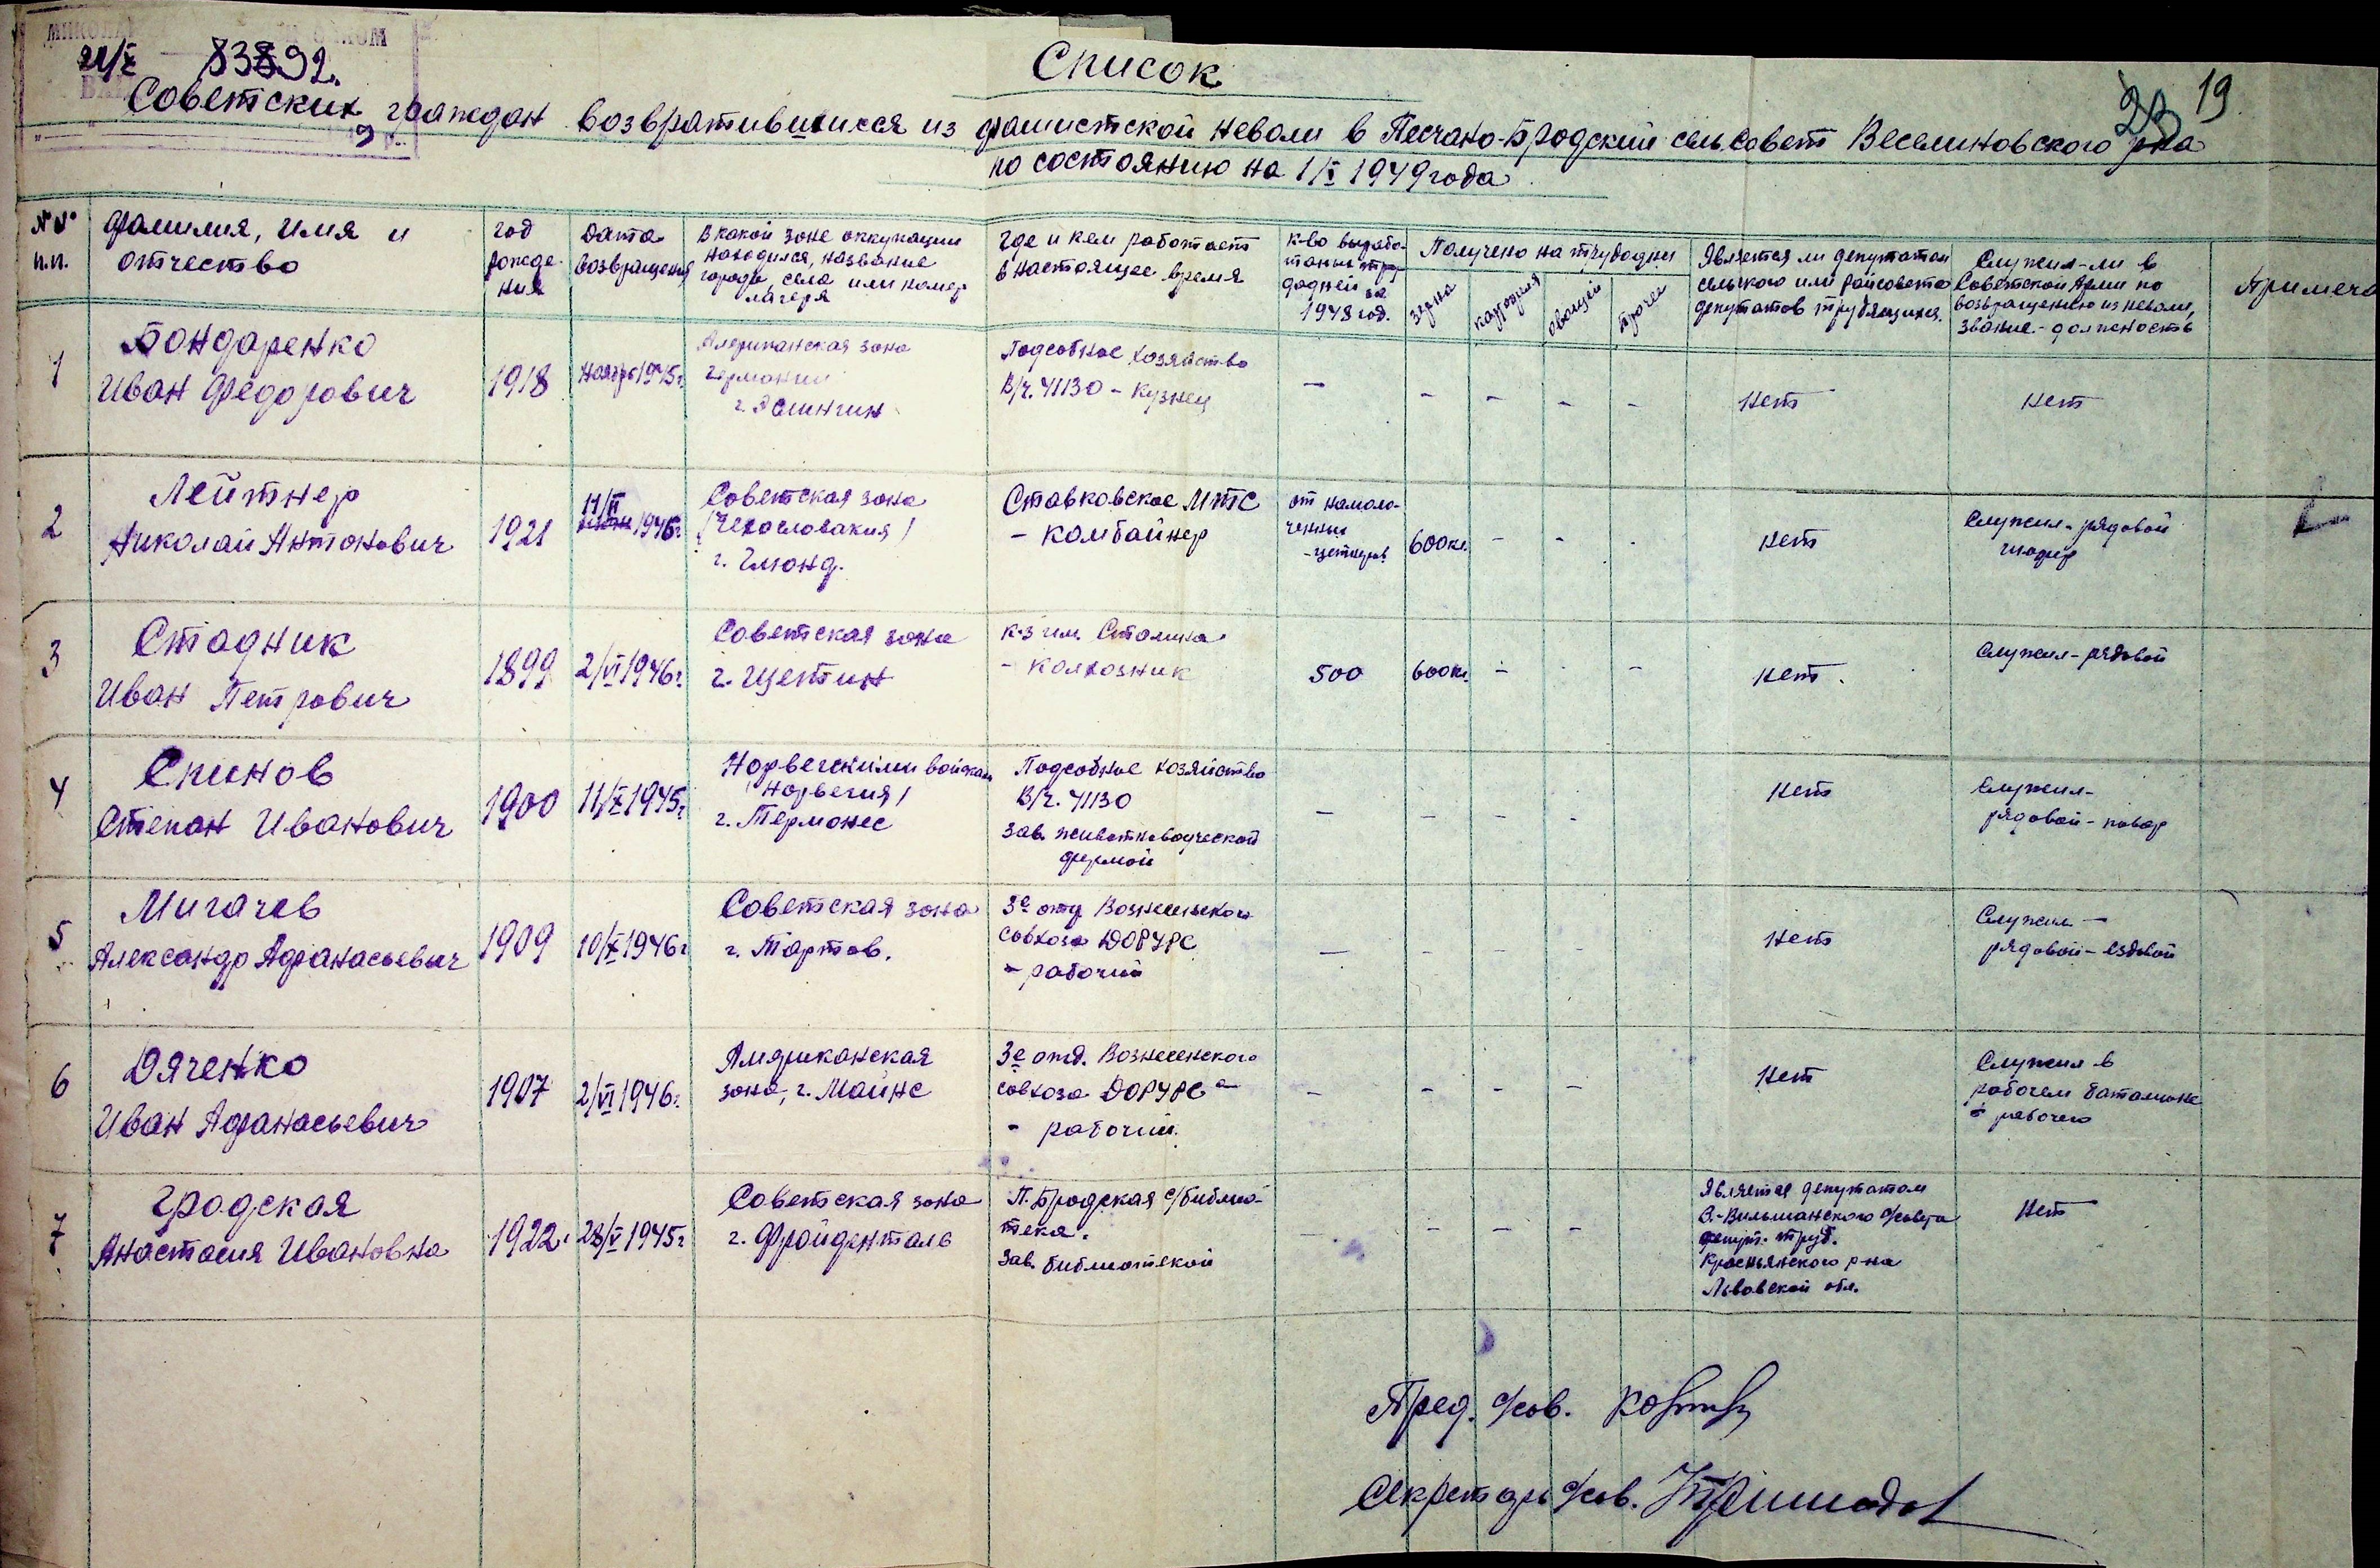 21/X
Список
19
23
Советских граждан возвратившихся из фашистской неволи в Песчано-Бродский сельсовет Веселиновского р-на
по состоянию на 1/X 1949 года
№№ п.п.
фамилия, имя и отчество
год рождения
Дата возвращения
В какой зоне оккупации находился, название города, села или номер лагеря
Где и кем работает в настоящее время
К-во выработанных трудодней за 1948 год.
Получено на трудодни
зерна
картофеля
овощей
прочее
Является ли депутатом сельского или райсовета депутатов трудящихся.
Служил-ли в Советской Армии по возвращению из неволи, звание - должность
Примеча
1
Бондаренко
Иван Федорович
1918
Ноябрь 1945г.
Американская зона
Германии
Подсобное хозяйство
В/ч. 41130 - кузнец
-
-
-
-
-
нет
нет
2
Лейтнер
Николай Антонович
1921
11/II 1946г.
Советская зона
/Чехословакия/
г. Гмюнд.
Ставковское МТС
- комбайнер
от намоло-
ченных
600кг.
-
-
-
нет
Служил - рядовой
3
Стадник
Иван Петрович
1899
2/VI 1946г.
Советская зона
г. Щетин
к-з им. Сталина
- колхозник
500
600кг.
-
-
-
нет.
Служил - рядовой
4
Спинов
Степан Иванович
1900
11/X 1945г.
Норвежскими войсками
/Норвегия/
г. Термонес
Подсобное хозяйство
В/ч. 41130
зав. животноводческой
фермой
-
-
-
-
нет
Служил -
рядовой - повар
5
Мигачев
Александр Афанасьевич
1909
10/X 1946г
Советская зона
г. Тартов.
3е отд Вознесенского
совхоза ДОРУРС
- рабочий
-
-
-
-
нет
Служил -
рядовой - ездовой
6
Дяченко
Иван Афанасьевич
1907
2/VI 1946г.
Американская
зона, г. Майнс
3е отд. Вознесенского
совхоза ДОРУРС а
- рабочий.
-
-
-
-
нет
Служил в
рабочем батальоне
- рабочего
7
Градская
Анастасия Ивановна
1922.
28/V 1945г
Советская зона
г. Фройденталь
П. Бродская с/библио-
тека.
зав. библиотекой
-
-
-
-
Является депутатом
О.-Вильшанского с/совета
депут. труд.
Краснянского р-на
Львовской обл.
нет
Пред. с/сов.
Секретарь с/сов.